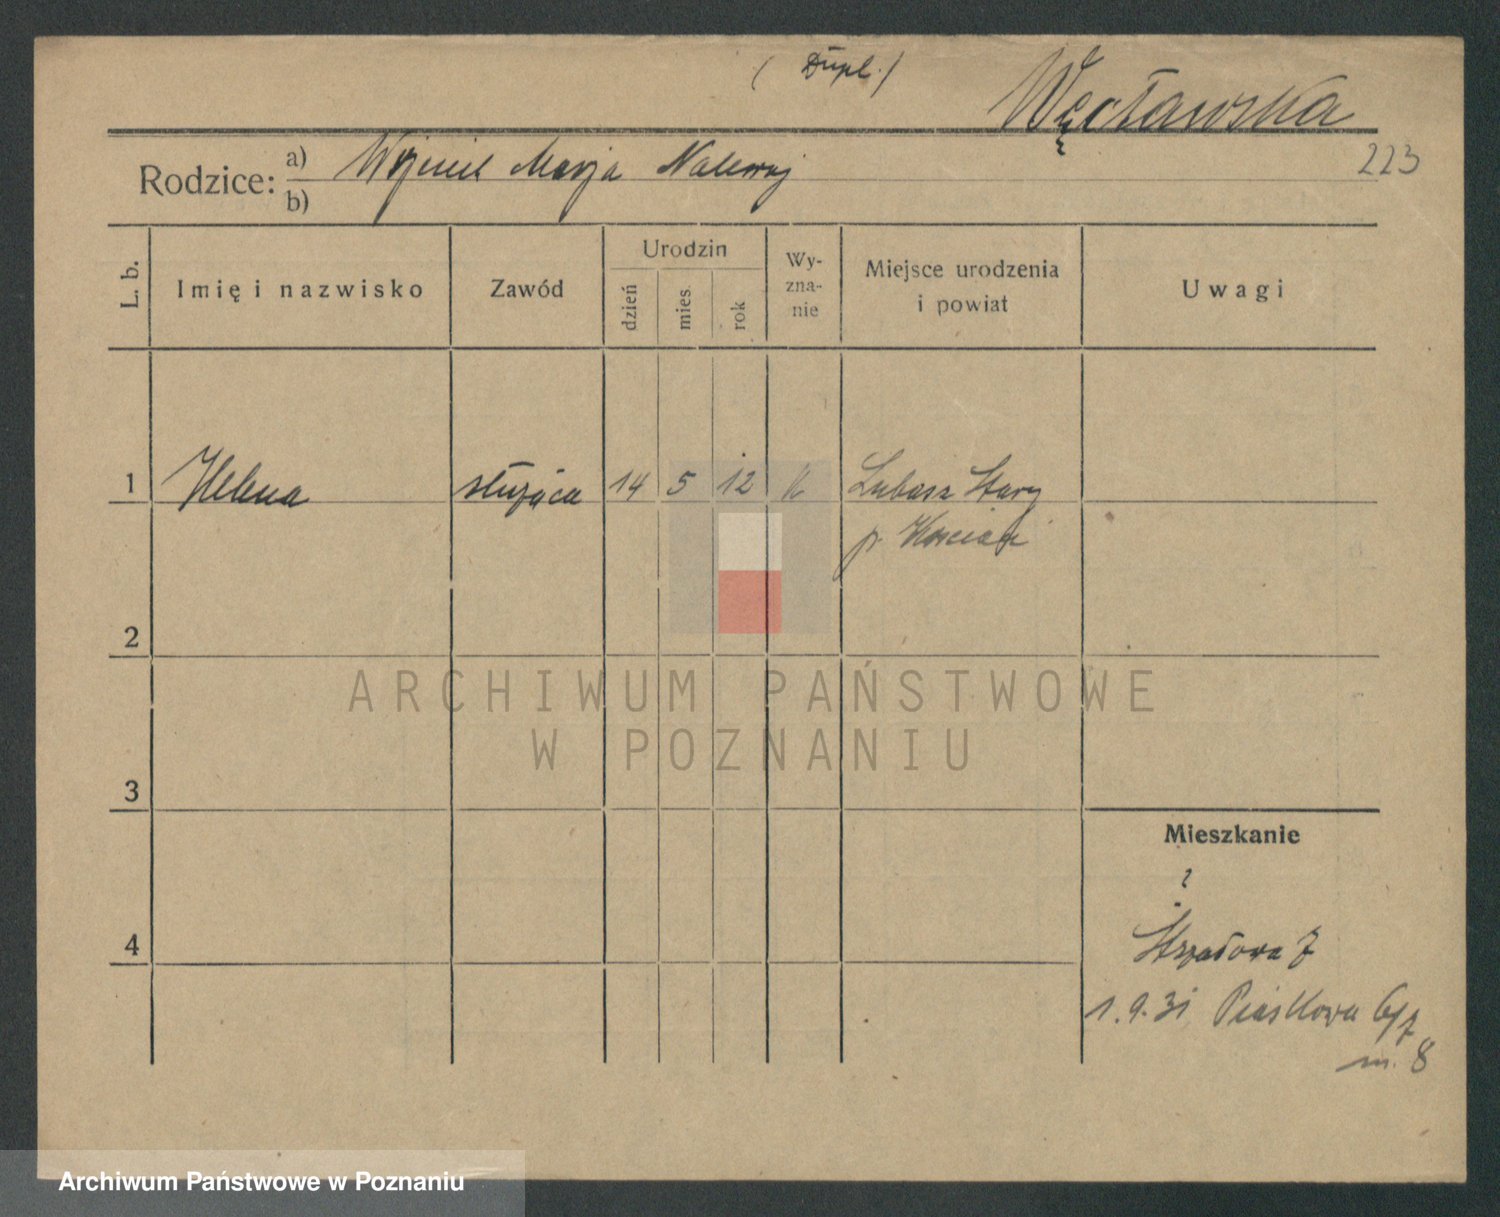 ( Dupl. )
Węcławska
223
Rodzice: a) Wojciech Marja Nalewaj
b)
L. b. Imię i nazwisko Zawód Urodzin dzień mies. rok Wy-zna-nie Miejsce urodzenia i powiat Uwagi
1 Helena służąca 14 5 12 k Lubosz Stary
p. Kościan
2
3
4
ARCHIWUM PAŃSTWOWE
W POZNANIU
Mieszkanie
?
1.9.31 Piaskowa 6/7
m. 8
Archiwum Państwowe w Poznaniu